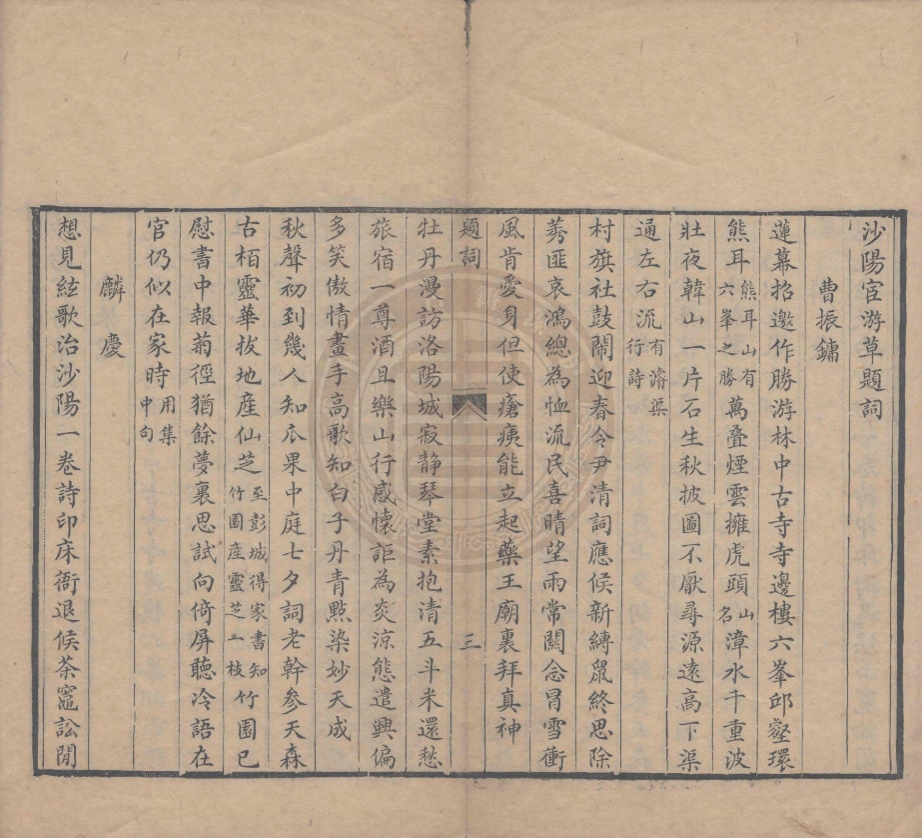 沙陽宦游草題詞
曹振鏞
蓮幕招邀作勝游林中古寺寺邊樓六峯邱壑環
熊耳熊耳山有六峯之勝萬叠煙雲擁虎頭山名漳水千重波
壯夜韓山一片石生秋披圖不厭尋源遠高下渠
通左右流有濬渠行詩
村旗社鼓鬧迎春令尹清詞應候新縛鼠終思除
莠匪哀鴻總為恤流民喜晴望雨常關念冒雪衝
風肯愛身但使瘡痍能立起藥王廟裏拜真神
題詞
三
牡丹漫訪洛陽城寂静琴堂素抱清五斗米還愁
旅宿一尊酒且樂山行感懷詎為炎涼態遣興偏
多笑傲情畫手高歌知白子丹青點染妙天成
秋聲初到幾人知瓜果中庭七夕詞老幹參天森
古栢靈華拔地産仙芝至彭城得家書知竹園産靈芝二枝竹園已
慰書中報菊徑猶餘夢裏思試向倚屏聽冷語在
官仍似在家時用集中句
麟慶
想見絃歌治沙陽一卷詩印床衙退候茶竈訟閒